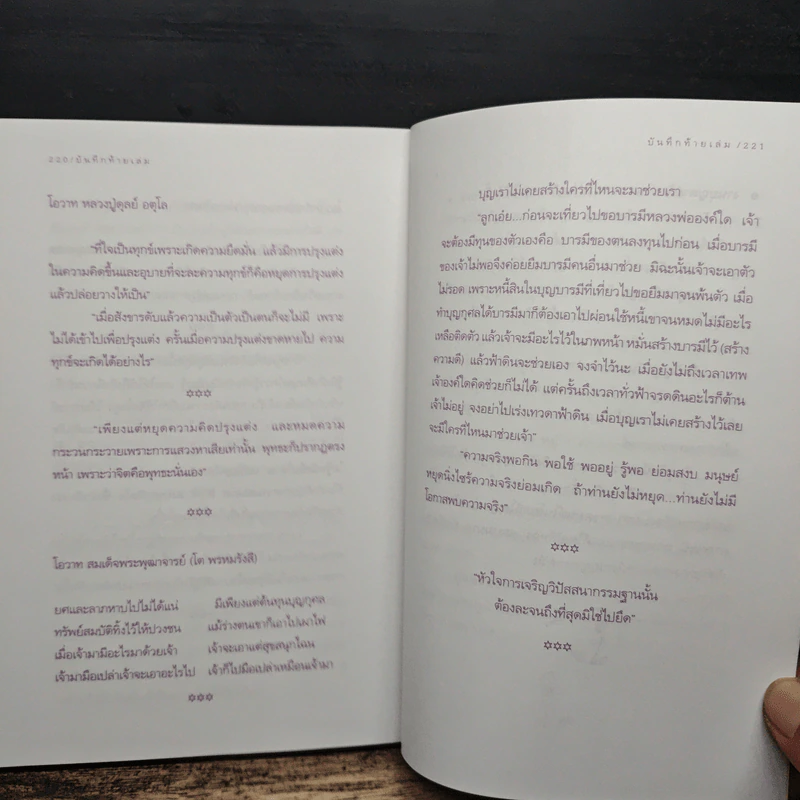 220/บันทึกท้ายเล่ม
โอวาท หลวงปู่ดุลย์ อตุโล
"ที่ใจเป็นทุกข์เพราะเกิดความยึดมั่น แล้วมีการปรุงแต่ง
ในความคิดขึ้นและอุบายที่จะละความทุกข์ก็คือหยุดการปรุงแต่ง
แล้วปล่อยวางให้เป็น"
"เมื่อสังขารดับแล้วความเป็นตัวเป็นตนก็จะไม่มี เพราะ
ไม่ได้เข้าไปเพื่อปรุงแต่ง ครั้นเมื่อความปรุงแต่งขาดหายไป ความ
ทุกข์จะเกิดได้อย่างไร"
✡✡✡
"เพียงแต่หยุดความคิดปรุงแต่ง และหมดความ
กระวนกระวายเพราะการแสวงหาเสียเท่านั้น พุทธะก็ปรากฏตรง
หน้า เพราะว่าจิตคือพุทธะนั่นเอง"
✡✡✡
โอวาท สมเด็จพระพุฒาจารย์ (โต พรหมรังสี)
ยศและลาภหาบไปไม่ได้แน่ มีเพียงแต่ต้นทุนบุญกุศล
ทรัพย์สมบัติทิ้งไว้ให้ปวงชน แม้ร่างตนเขาก็เอาไปเผาไฟ
เมื่อเจ้ามามีอะไรมาด้วยเจ้า เจ้าจะเอาแต่สุขสนุกไฉน
เจ้ามามือเปล่าเจ้าจะเอาอะไรไป เจ้าก็ไปมือเปล่าเหมือนเจ้ามา
✡✡✡
บันทึกท้ายเล่ม /221
บุญเราไม่เคยสร้างใครที่ไหนจะมาช่วยเรา
"ลูกเอ๋ย...ก่อนจะเที่ยวไปขอบารมีหลวงพ่อองค์ใด เจ้า
จะต้องมีทุนของตัวเองคือ บารมีของตนลงทุนไปก่อน เมื่อบารมี
ของเจ้าไม่พอจึงค่อยยืมบารมีคนอื่นมาช่วย มิฉะนั้นเจ้าจะเอาตัว
ไม่รอด เพราะหนี้สินในบุญบารมีที่เที่ยวไปขอยืมมาจนพ้นตัว เมื่อ
ทำบุญกุศลได้บารมีมาก็ต้องเอาไปผ่อนใช้หนี้เขาจนหมดไม่มีอะไร
เหลือติดตัว แล้วเจ้าจะมีอะไรไว้ในภพหน้า หมั่นสร้างบารมีไว้ (สร้าง
ความดี) แล้วฟ้าดินจะช่วยเอง จงจำไว้นะ เมื่อยังไม่ถึงเวลาเทพ
เจ้าองค์ใดคิดช่วยก็ไม่ได้ แต่ครั้นถึงเวลาทั่วฟ้าจรดดินอะไรก็ต้าน
เจ้าไม่อยู่ จงอย่าไปเร่งเทวดาฟ้าดิน เมื่อบุญเราไม่เคยสร้างไว้เลย
จะมีใครที่ไหนมาช่วยเจ้า"
"ความจริงพอกิน พอใช้ พออยู่ รู้พอ ย่อมสงบ มนุษย์
หยุดนิ่งไซร้ความจริงย่อมเกิด ถ้าท่านยังไม่หยุด...ท่านยังไม่มี
โอกาสพบความจริง"
✡✡✡
"หัวใจการเจริญวิปัสสนากรรมฐานนั้น
ต้องละจนถึงที่สุดมิใช่ไปยึด"
✡✡✡